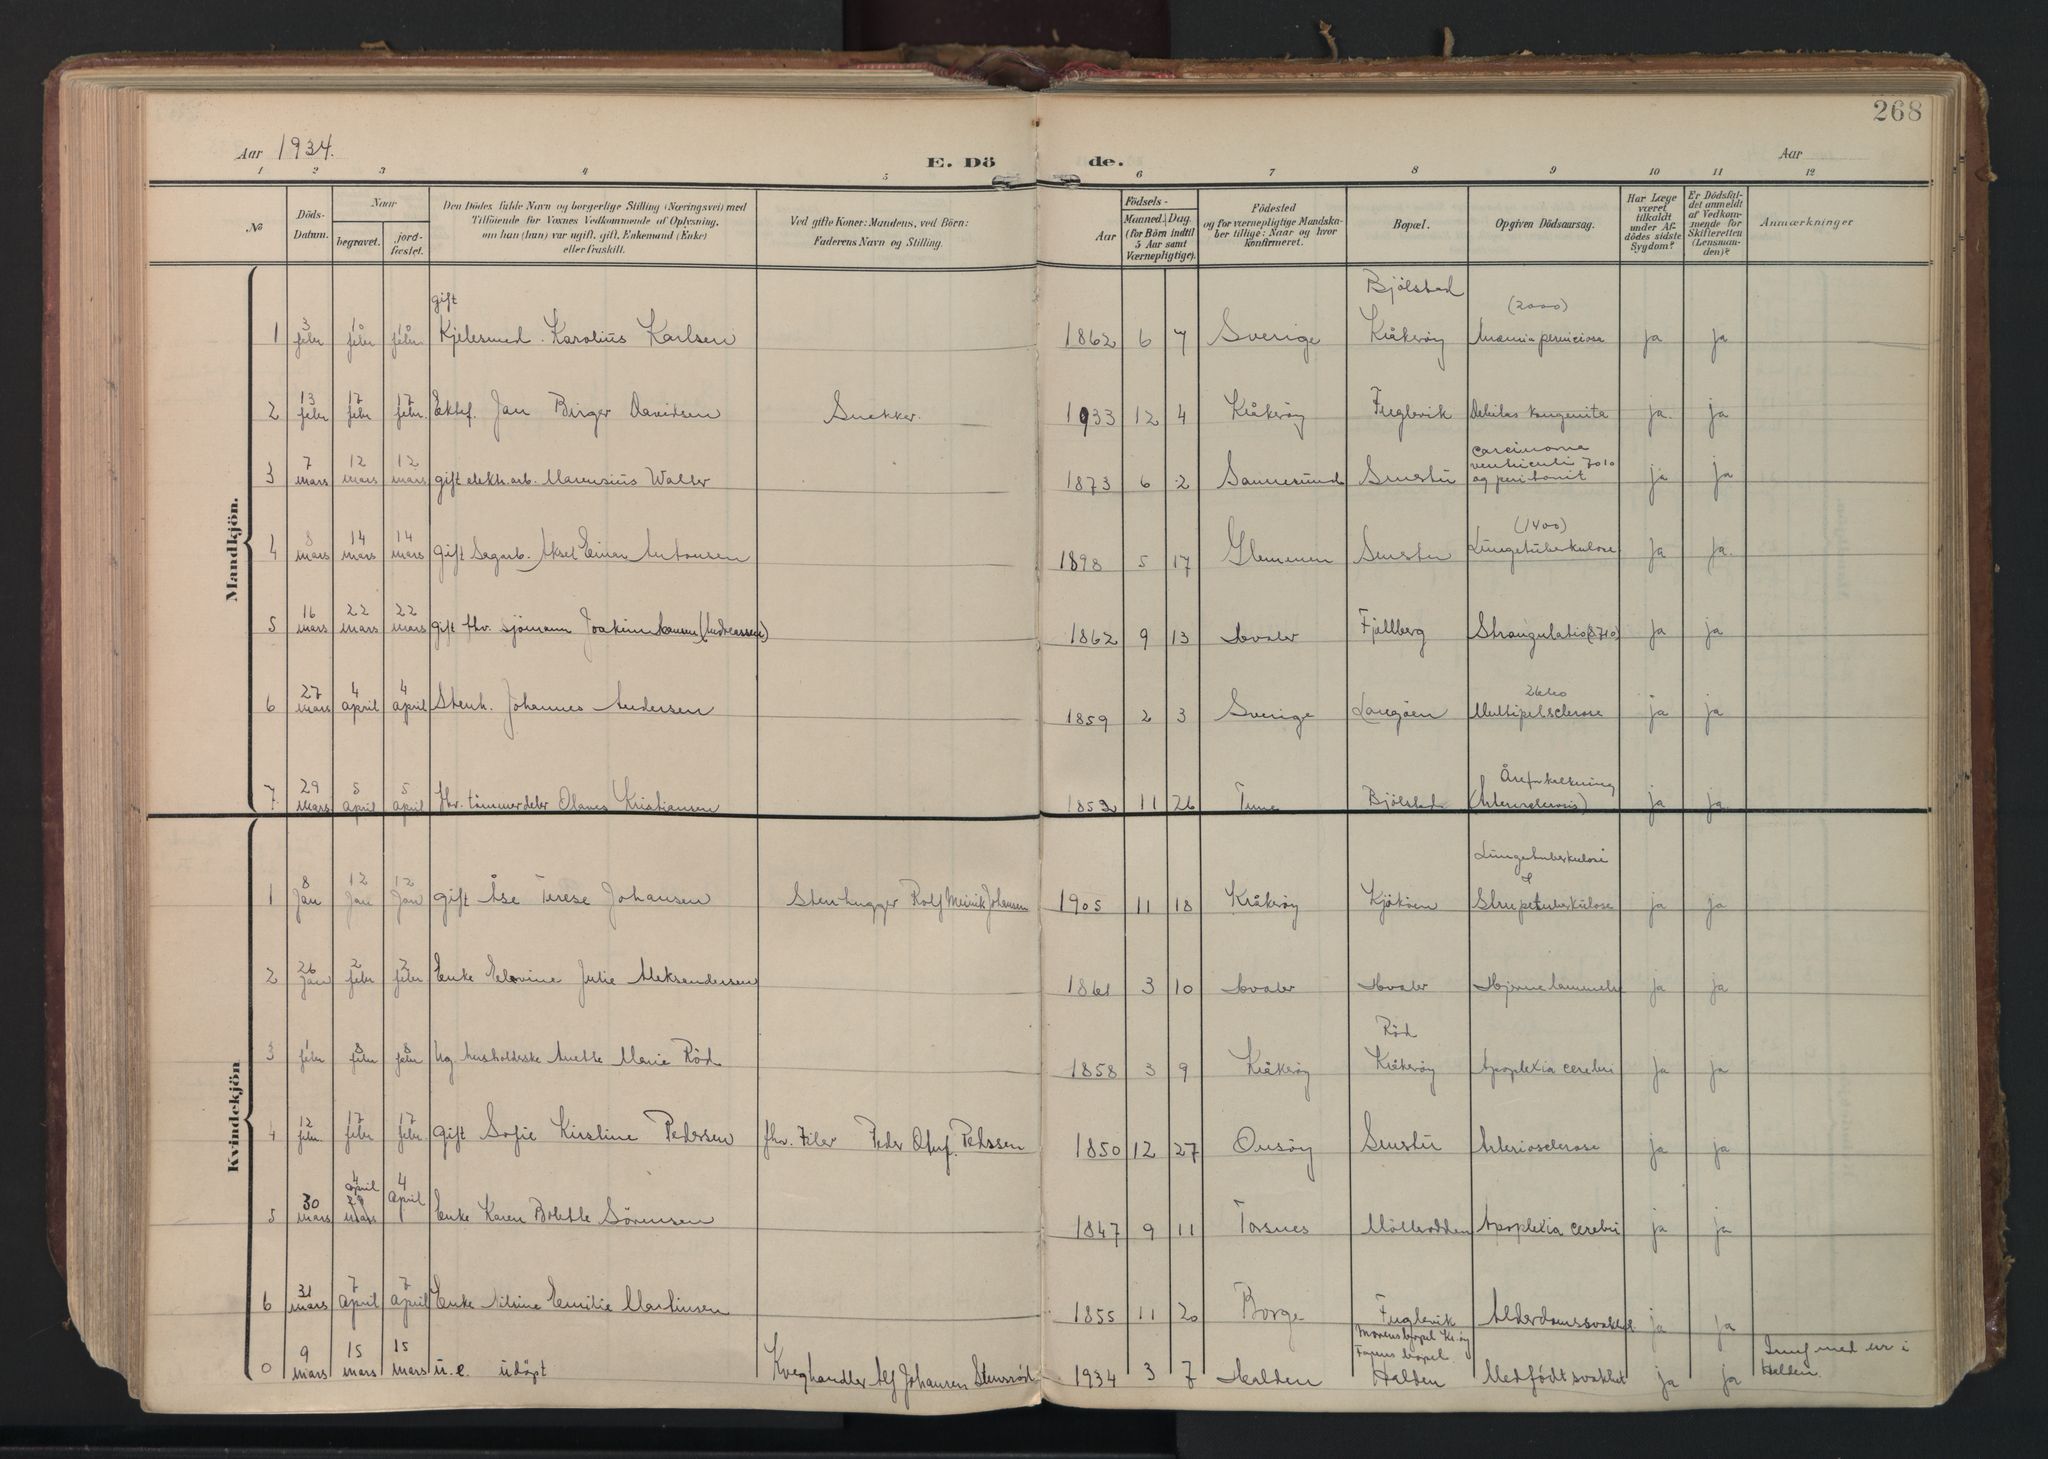 268
Aar 1934.
E. Dö de.
Aar
1 2 3 4 5 6 7 8 9 10 11 12
No
Döds-Datum.
Naar
begravet.
jord-fæstet.
Den Dödes fulde Navn og borgerlige Stilling (Næringsvei) med
Tilföiende for Voxnes Vedkommende af Oplysning,
om han (hun) var ugift, gift, Enkemand (Enke)
eller fraskilt.
Ved gifte Koner: Mandens, ved Börn:
Faderens Navn og Stilling.
Födsels-
Aar
Maaned. Dag.
(for Börn indtil
5 Aar samt
Værnepligtige).
Födested
og for værnepligtige Mandska-
ber tillige: Naar og hvor
konfirmeret.
Bopæl.
Opgiven Dödsaarsag.
Har Læge
været
tilkaldt
under Af-
dödes sidste
Sygdom?
Er Dödsfal-
det anmeldt
af Vedkom-
mende for
Skifteretten
(Lensman-
den)?
Anmærkninger
Mandkjön.
gift Bjölstad (2000)
1 3 febr febr febr Kjelesmed. Karolius Karlsen 1862 6 7 Sverige Kråkeröy Anæmia perniciosa ja ja
2 13 febr 17 febr 17 febr. Ektef. Jan Birger Davidsen Snekker. 1933 12 4 Kråkeröy Fuglevik Debilas kongenita ja. ja
carcinoma
3 7 mars 12 mars 12 mars gift elektr.arb. Marensius Walter 1873 6 2 Sannesund Smertu ventriculi og peritonit ja ja
(1400)
4 8 mars 14 mars 14 mars gift Sagarb. Aksel Einar Antonsen 1898 5 17 Glemmen Smertu Lungetuberkulose ja ja.
5 16 mars 22 mars 22 mars gift fhv. sjömann Joakim Hansen (Andreassen) 1862 9 13 Hvaler Fjellberg Strangulatio ja ja
6 27 mars 4 april 4 april Stenh. Johannes Andersen 1859 2 3 Sverige Langöen Multipel sclerose ja ja
Åreforkalkning
7 29 mars 5 april 5 april fhv. tömmerdeler Olaves Kristiansen 1852 11 26 Tune Bjölstad (Arteriosclerosis) ja ja
Kvindekjön
Lungetuberkulose
&
1 8 Jan 12 Jan 12 Jan gift Åse Terese Johansen Stenhugger Rolf Meinik Johansen 1905 11 18 Kråkeröy Kjököen Strupetuberkulose ja ja
2 26 Jan 2 febr 2 febr Enke Elovine Julie Aleksandersen 1861 3 10 Hvaler Hvaler Hjernelammelse ja ja
Röd
3 1 febr 8 febr 8 febr Ug husholderske Anette Marie Röd 1858 3 9 Kråkeröy Kråkeröy Apoplexia cerebri ja ja
4 12 febr. 17 febr 17 febr. gift Sofie Kirstine Pedersen fhv. Filer Peder Oluf. Pedssen 1850 12 27 Onsöy Smertu Arteriosclerose ja ja
4 april 4 april
5 30 mars 29 mars Enke Karen Bolette Sörensen 1847 9 11 Torsnes Möllerodden Apoplexia cerebri ja ja
6 31 mars 7 april 7 april Enke Nilsine Emilie Martinsen 1855 11 20 Borge Fuglevik Alderdomssvakhet ja ja
Morens bopel Kr.öy
Farens bopel.
0 9 mars 15 mars 15 mars u. e. udöpt Kveghandler Alf Johansen Stensröd 1934 3 7 Halden Halden Medfödt svakhet ja ja med nr i Halden.